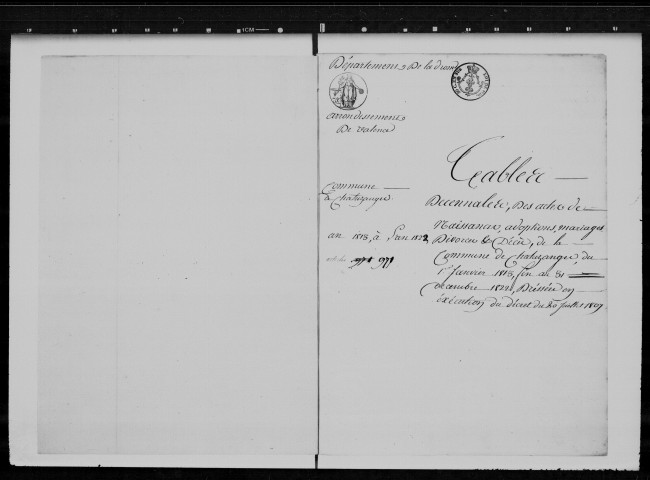 Département De la drome
arrondissement
De Valence
Commune
de Chatuzange
an 1813, à L'an 1822
Tables
Decennales, Des actes de
Naissance, adoptions, mariages
Divorces & Décès, de la
Commune de Chatuzange, du
1er Janvier 1813, fin au 31
decembre 1822, Dressée en
éxécution du décret du 20 Juillet 1807.